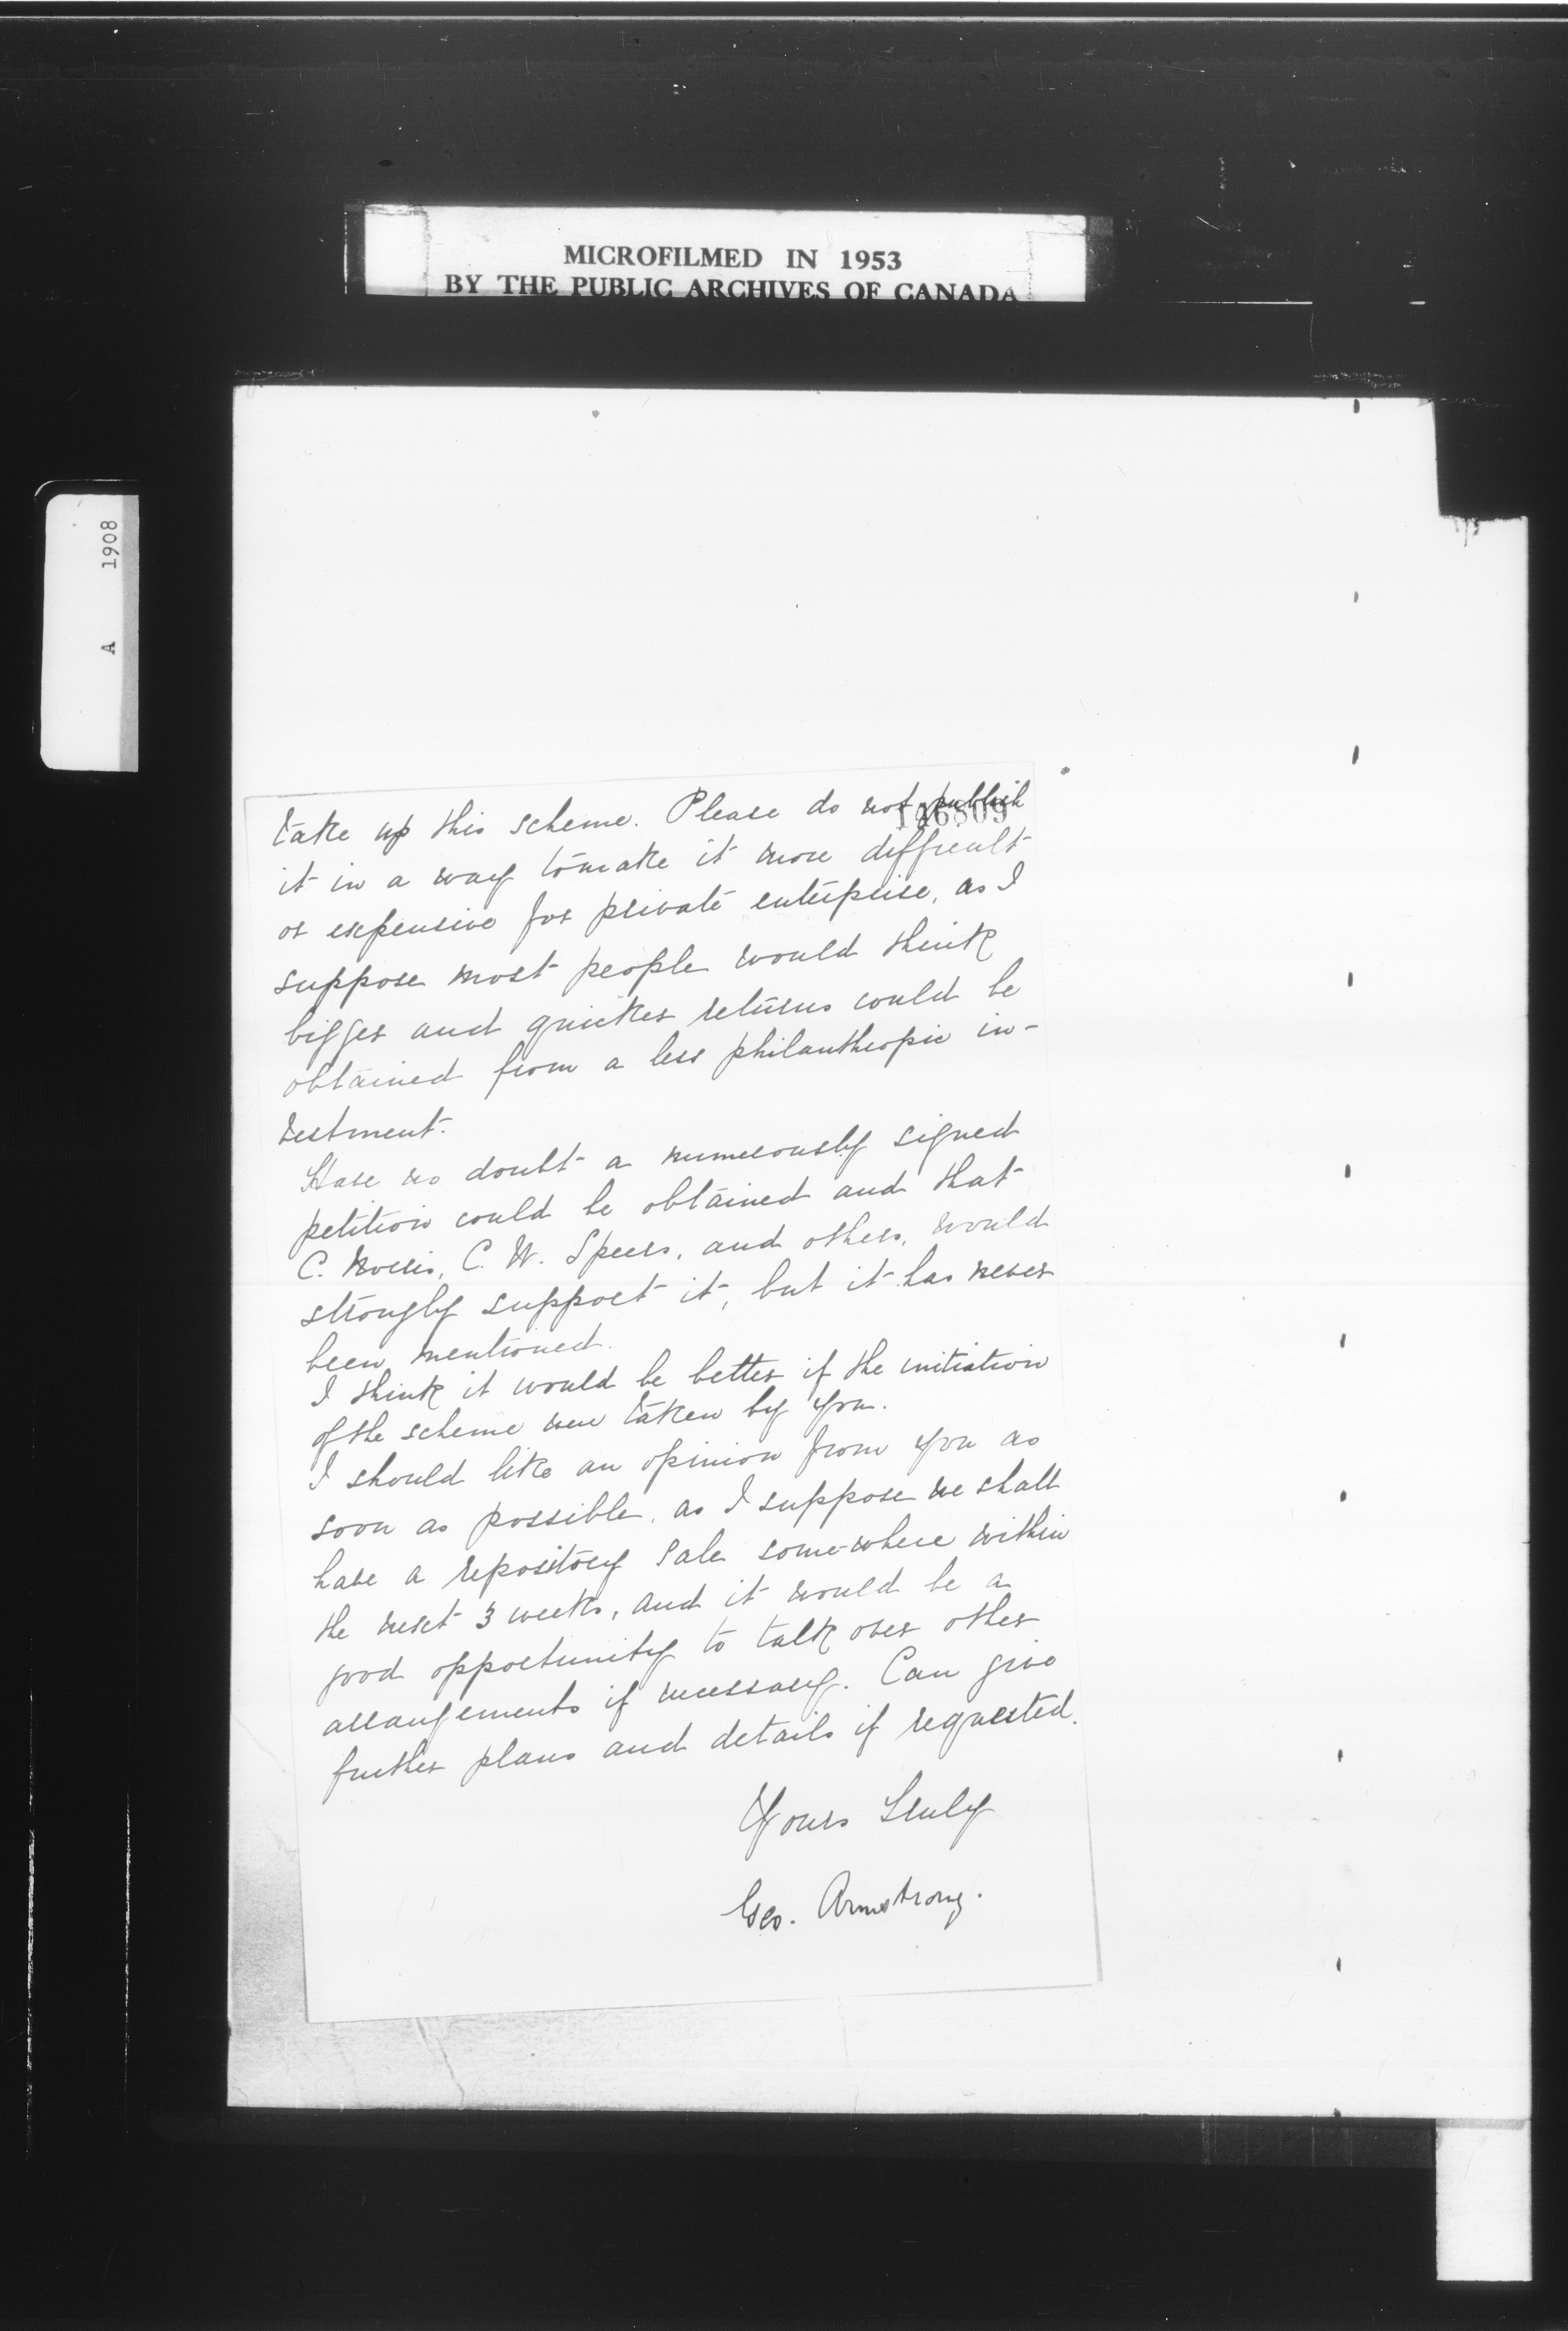 MICROFILMED IN 1953
BY THE PUBLIC ARCHIVES OF CANADA
A 1908
146809
take up this scheme. Please do not publish
it in a way to make it more difficult
or expensive for private enterprise, as I
suppose most people would think
bigger and quicker returns could be
obtained from a less philanthropic in-
vestment.
Have no doubt a numerously signed
petition could be obtained and that
C. Norris, C. W. Speers, and others, would
strongly support it, but it has never
been mentioned.
I think it would be better if the initiation
of the scheme were taken by you.
I should like an opinion from you as
soon as possible, as I suppose we shall
have a repository sale somewhere within
the next 3 weeks, and it would be a
good opportunity to talk over other
arrangements if necessary. Can give
further plans and details if requested.
Yours Truly
Geo. Armstrong.